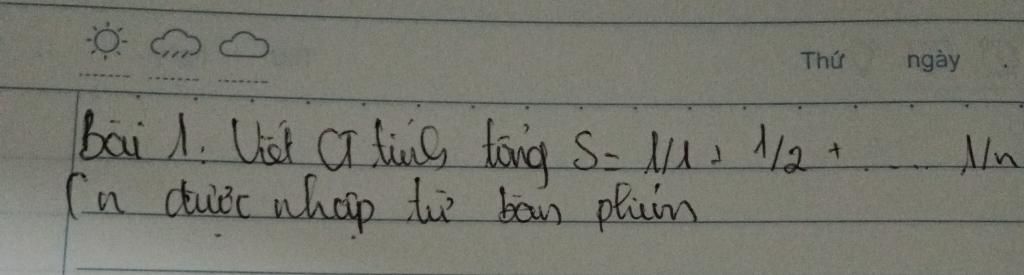 Thứ ngày .
bài 1. Viết CT tính tổng S= 1/1 + 1/2 + ..... 1/n
(n được nhập từ bàn phím